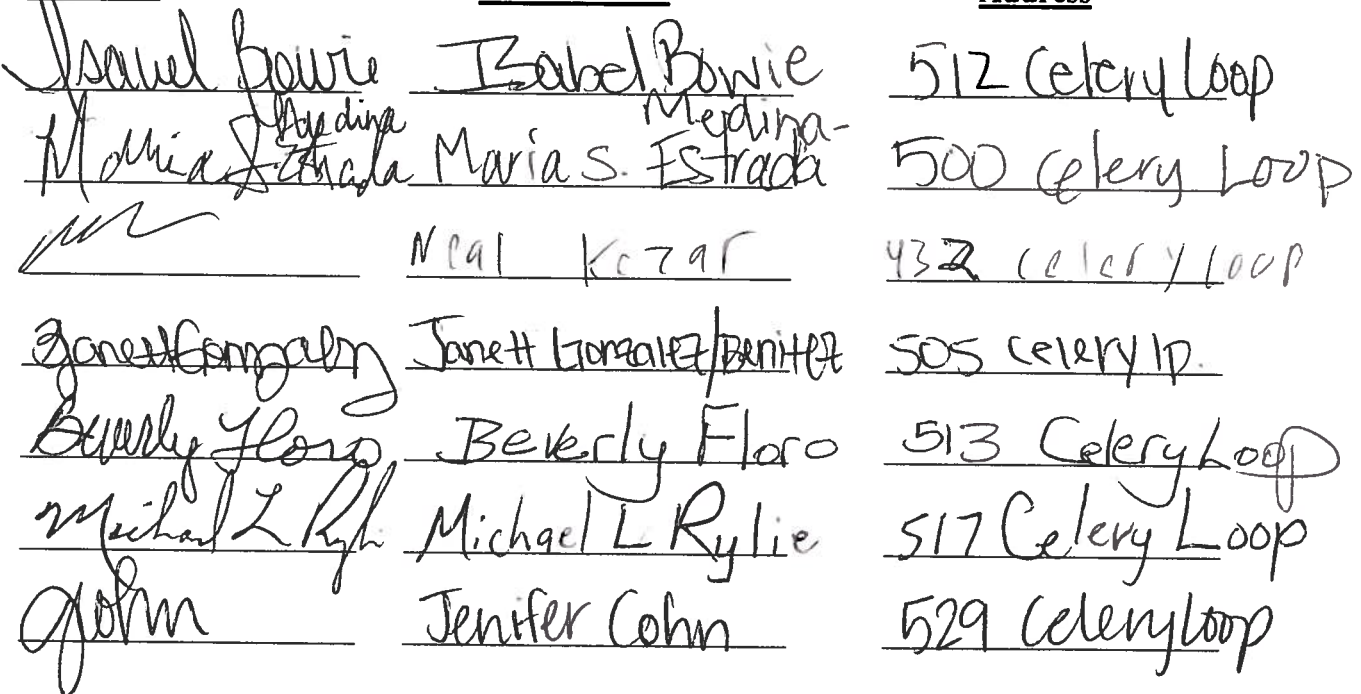 Address
Isabel Bowie Isabel Bowie 512 Celery Loop
Medina Medina-
Maria S Estrada Maria S. Estrada 500 Celery Loop
Neal Kezar 432 Celery Loop
Janett Gonzalez Janett Gonzalez/Benitez 505 Celery lp.
Beverly Floro Beverly Floro 513 Celery Loop
Michael L Rylie Michael L Rylie 517 Celery Loop
Jenifer Cohn 529 Celery Loop